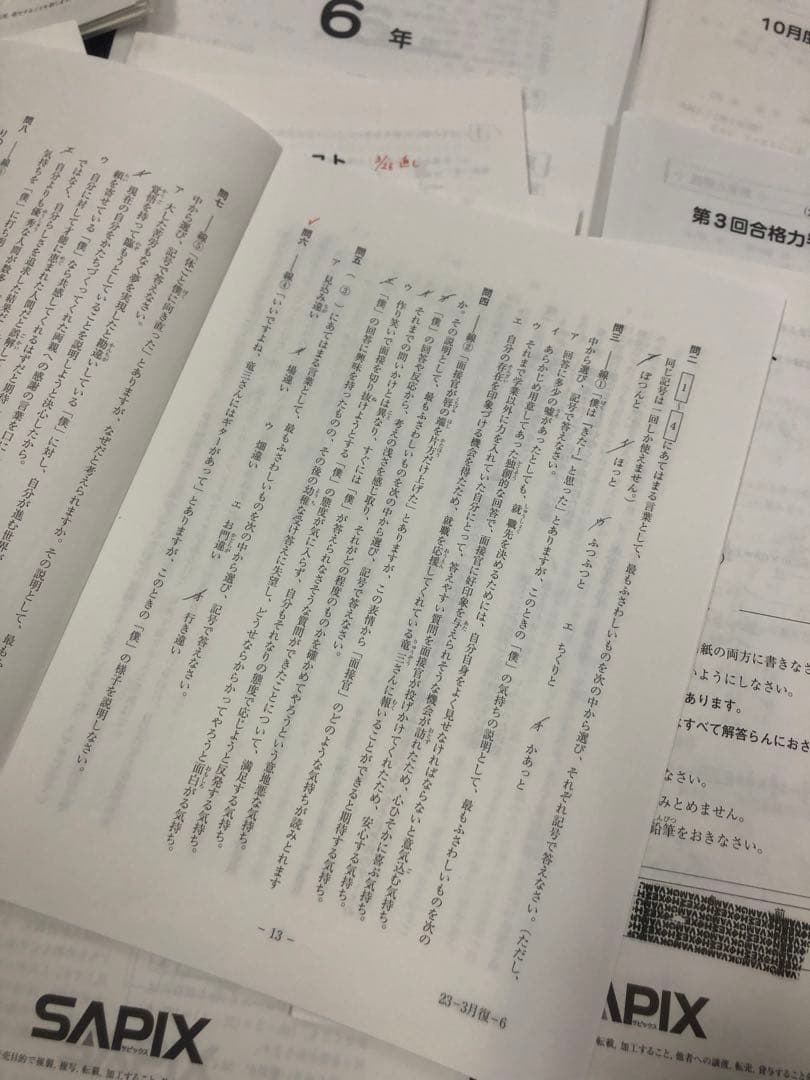 6年
10月度
第3回合格力
スト 3/23 直し
問二 1 〜 4 にあてはまる言葉として、最もふさわしいものを次の中から選び、それぞれ記号で答えなさい。(ただし、
同じ記号は一回しか使えません。)
ア ぽつんと イ ほっと ウ ふつふつと エ ちくりと オ かあっと
問三 ――線①「僕は『きたー!』と思った」とありますが、このときの「僕」の気持ちの説明として、最もふさわしいものを次の
中から選び、記号で答えなさい。
ア 回答に多少の嘘があったとしても、就職先を決めるためには、自分自身をよく見せなければならないと意気込む気持ち。
イ あらかじめ用意してあった独創的な回答で、面接官に好印象を与えられそうな機会が訪れたため、心ひそかに喜ぶ気持ち。
ウ それまで学業以外に力を入れていた自分にとって、答えやすい質問を面接官が投げかけてくれたため、安心する気持ち。
エ 自分の存在を印象づける機会を得たため、就職を応援してくれている竜三さんに報いることができると期待する気持ち。
問四 ――線②「面接官が唇の端を片方だけ上げた」とありますが、この表情から「面接官」のどのような気持ちが読みとれます
か。その説明として、最もふさわしいものを次の中から選び、記号で答えなさい。
ア 「僕」の回答や反応から、考えの浅さを感じ取り、それがどの程度のものかを確かめてやろうという意地悪な気持ち。
イ それまでの問いかけとは異なり、すぐには「僕」が答えられなさそうな質問ができたことについて、満足する気持ち。
ウ 作り笑いで面接を切り抜けようとする「僕」の態度が気に入らず、自分もそれなりの態度で応じようと反発する気持ち。
エ 「僕」の回答に興味を持ったものの、その後の幼稚な受け答えに失望し、どうせならからかってやろうと面白がる気持ち。
問五 ( ③ )にあてはまる言葉として、最もふさわしいものを次の中から選び、記号で答えなさい。
ア 見込み違い イ 場違い ウ 畑違い エ お門違い オ 行き違い
問六 ――線④「いいですよね、竜三さんにはギターがあって」とありますが、このときの「僕」の様子を説明しなさい。
- 13 -
23-3月復-6
問七 ――線⑤「体ごと僕に向き直った」とありますが、なぜだと考えられますか。その説明として、最もふ
中から選び、記号で答えなさい。
ア 大した苦労もなく夢を実現したと勘違いしている「僕」に対し、自分が進む世界が
覚悟を持って臨もうとしていることを説明しようと決心したから。
イ 現在の自分をかたちづくってくれた両親への感謝の言葉を口に
頼を寄せている「僕」なら共感してくれるはずだと期待
ウ 自分に対して才能に恵まれた人間だと誤解し
ではなく、自分らしさを追求した結果だ
エ 自分よりも優秀な人間が数多
気持ちを「僕」に打ち明
問八 ――線⑥
紙の両方に書きなさ
いようにしなさい。
あります。
すべて解答らんにおさ
なさい。
みとめません。
鉛筆をおきなさい。
SAPIX
サピックス
売目的で複製、複写、転載、加工すること、
SAPIX
転載、加工すること、他者への譲渡、転売、貸与すること